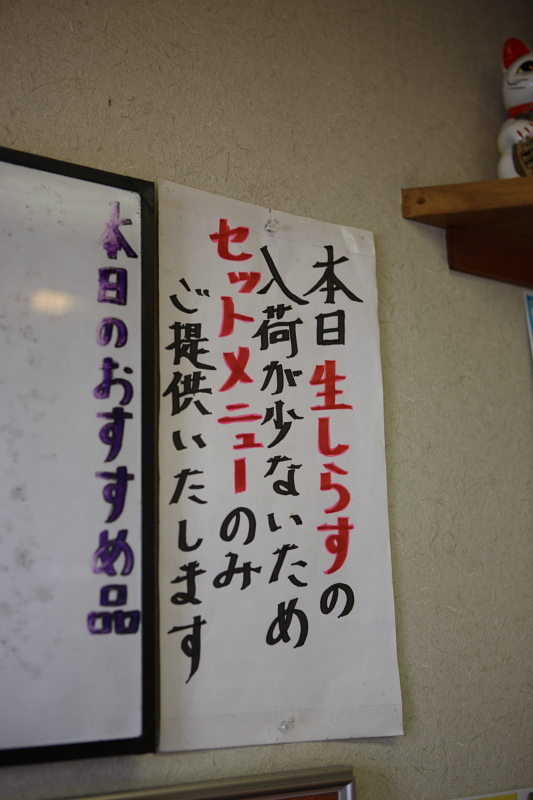 本日生しらすの
入荷が少ないため
セットメニューのみ
ご提供いたします
本日のおすすめ品